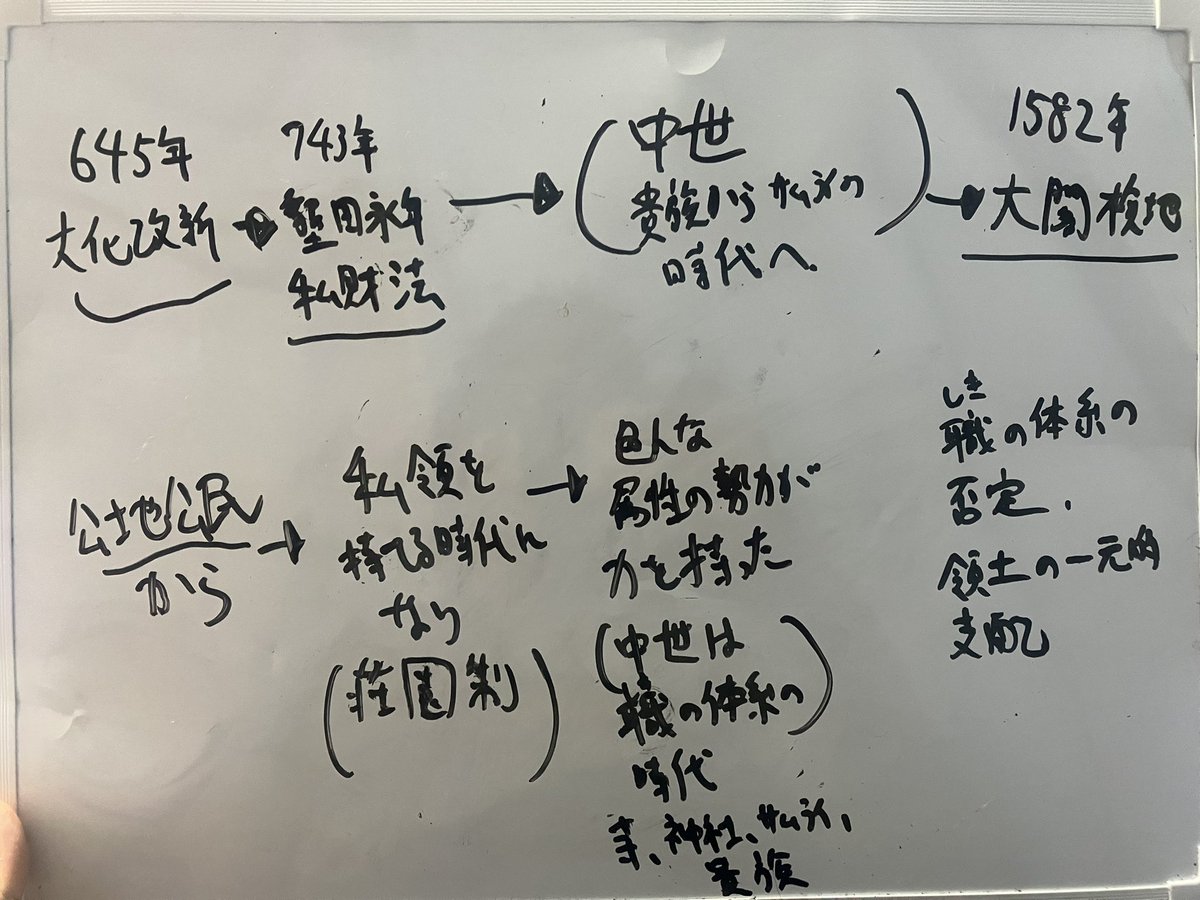 645年
大化改新
743年
墾田永年
私財法
中世
貴族からサムライの
時代へ
1582年
太閤検地
公地公民
から
私領を
持てる時代に
なり
(荘園制)
色んな
属性の勢力が
力を持った
(中世は
職の体系の)
時代
寺、神社、サムライ、
貴族
しき
職の体系の
否定、
領土の一元的
支配